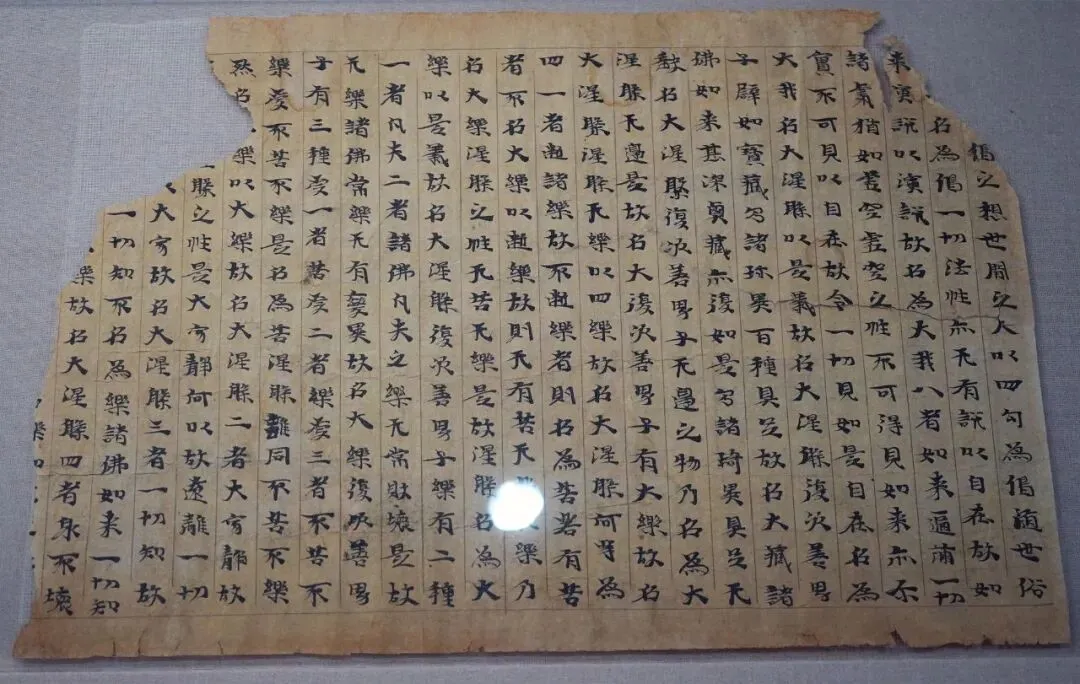 偈之想世間之人以四句為偈随世俗
名為偈一切法性亦无有説以自在故如
来演説以演説故名為大我八者如来遍滿一切
諸處猶如虛空虛空之性不可得見如来亦尒
實不可見以自在故令一切見如是自在名為
大我名大涅槃以是義故名大涅槃復次善男
子譬如寶藏多諸珎異百種具足故名大藏諸
佛如来甚深奧藏亦復如是多諸琦異具足无
歎名大涅槃復次善男子无邊之物乃名為大
涅槃无邊是故名大復次善男子有大樂故名
大涅槃涅槃无樂以四樂故名大涅槃何等為
四一者断諸樂故不断樂者則名為苦若有苦
者不名大樂以断樂故則无有苦无樂乃
名大樂涅槃之性无苦无樂是故涅槃名為大
樂以是義故名大涅槃復次善男子樂有二種
一者凡夫二者諸佛凡夫之樂无常敗壞是故
无樂諸佛常樂无有變異故名大樂復次善男
子有三種受一者苦受二者樂受三者不苦不
樂受不苦不樂是名為苦涅槃雖同不苦不樂
然名樂以大樂故名大涅槃二者大寂靜故
槃之性是大寂靜何以故遠離一切
大寂故名大涅槃三者一切知故
一切知不名為樂諸佛如来一切知
樂故名大涅槃四者身不壞